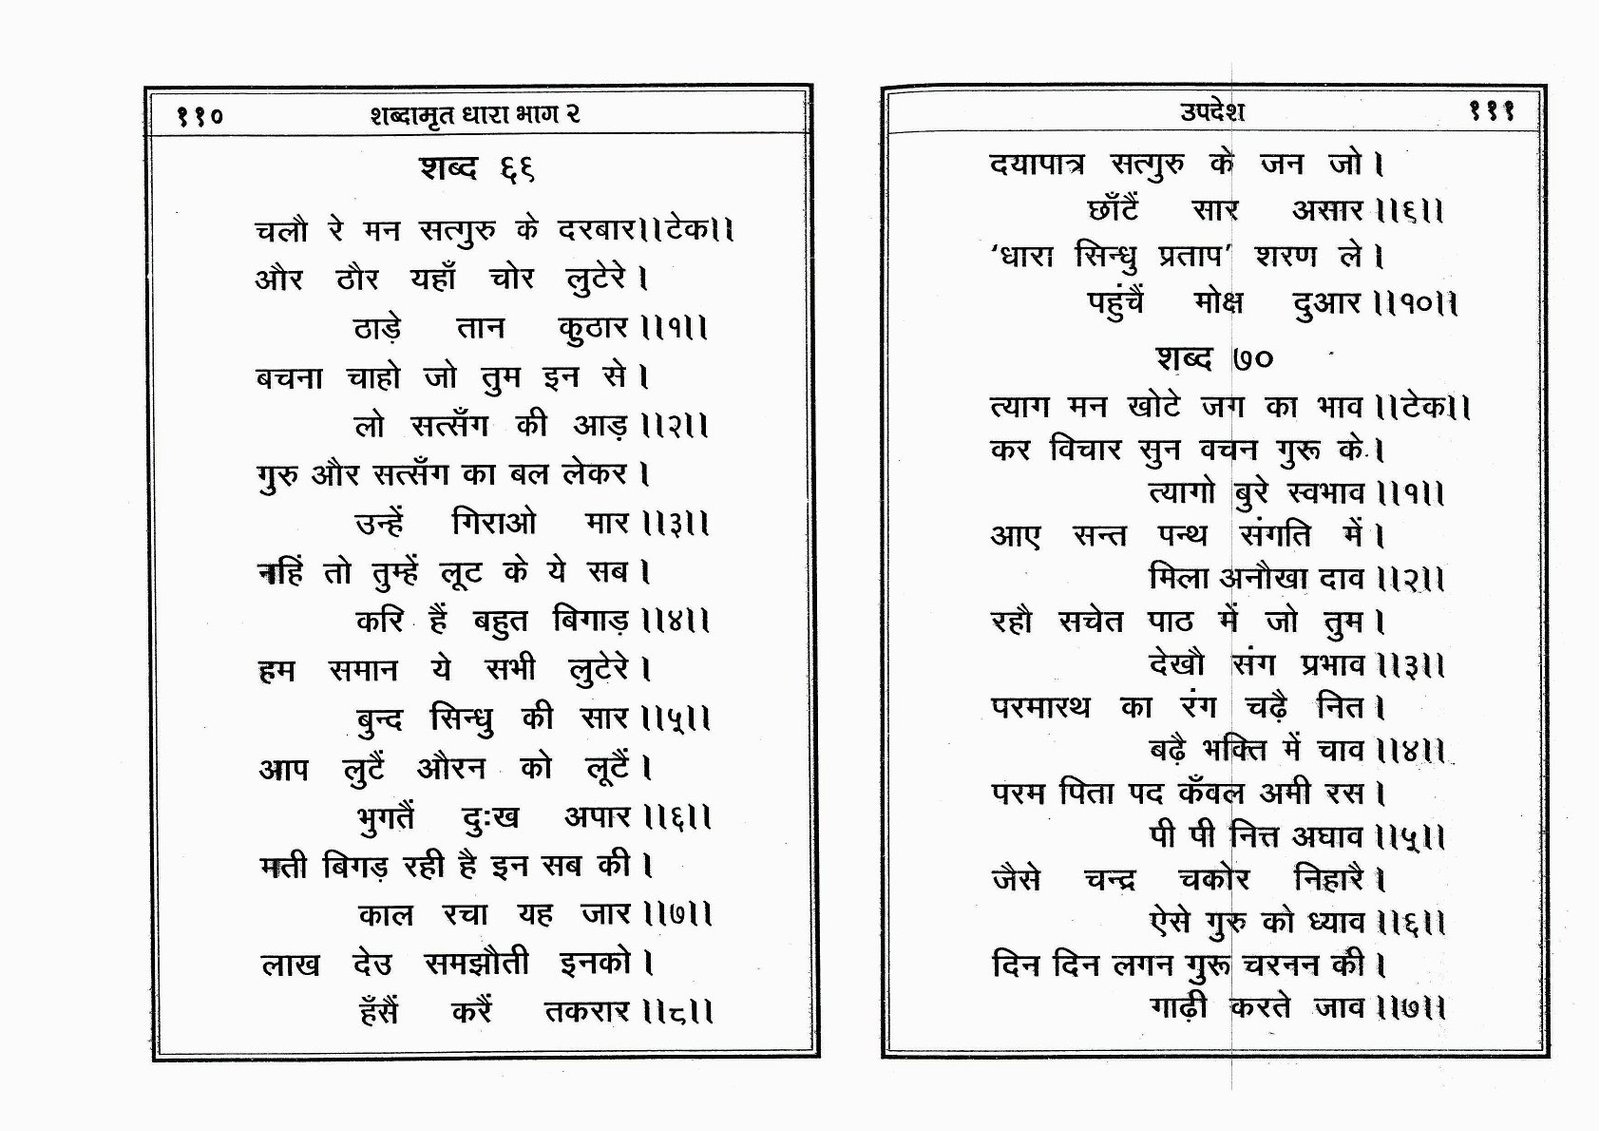 ११० शब्दामृत धारा भाग २
शब्द ६९
चलौ रे मन सत्गुरु के दरबार।।टेक।।
और ठौर यहाँ चोर लुटेरे।
ठाड़े तान कुठार।।१।।
बचना चाहो जो तुम इन से।
लो सत्सँग की आड़।।२।।
गुरु और सत्सँग का बल लेकर।
उन्हें गिराओ मार।।३।।
नहिं तो तुम्हें लूट के ये सब।
करि हैं बहुत बिगाड़।।४।।
हम समान ये सभी लुटेरे।
बुन्द सिन्धु की सार।।५।।
आप लुटैं औरन को लूटैं।
भुगतैं दुःख अपार।।६।।
मती बिगड़ रही है इन सब की।
काल रचा यह जार।।७।।
लाख देउ समझौती इनको।
हँसैं करैं तकरार।।८।।
उपदेश १११
दयापात्र सत्गुरु के जन जो।
छाँटैं सार असार।।९।।
‘धारा सिन्धु प्रताप’ शरण ले।
पहुंचैं मोक्ष दुआर।।१०।।
शब्द ७०
त्याग मन खोटे जग का भाव।।टेक।।
कर विचार सुन वचन गुरू के।
त्यागो बुरे स्वभाव।।१।।
आए सन्त पन्थ संगति में।
मिला अनौखा दाव।।२।।
रहौ सचेत पाठ में जो तुम।
देखौ संग प्रभाव।।३।।
परमारथ का रंग चढ़ै नित।
बढ़ै भक्ति में चाव।।४।।
परम पिता पद कँवल अमी रस।
पी पी नित्त अघाव।।५।।
जैसे चन्द्र चकोर निहारै।
ऐसे गुरु को ध्याव।।६।।
दिन दिन लगन गुरू चरनन की।
गाढ़ी करते जाव।।७।।